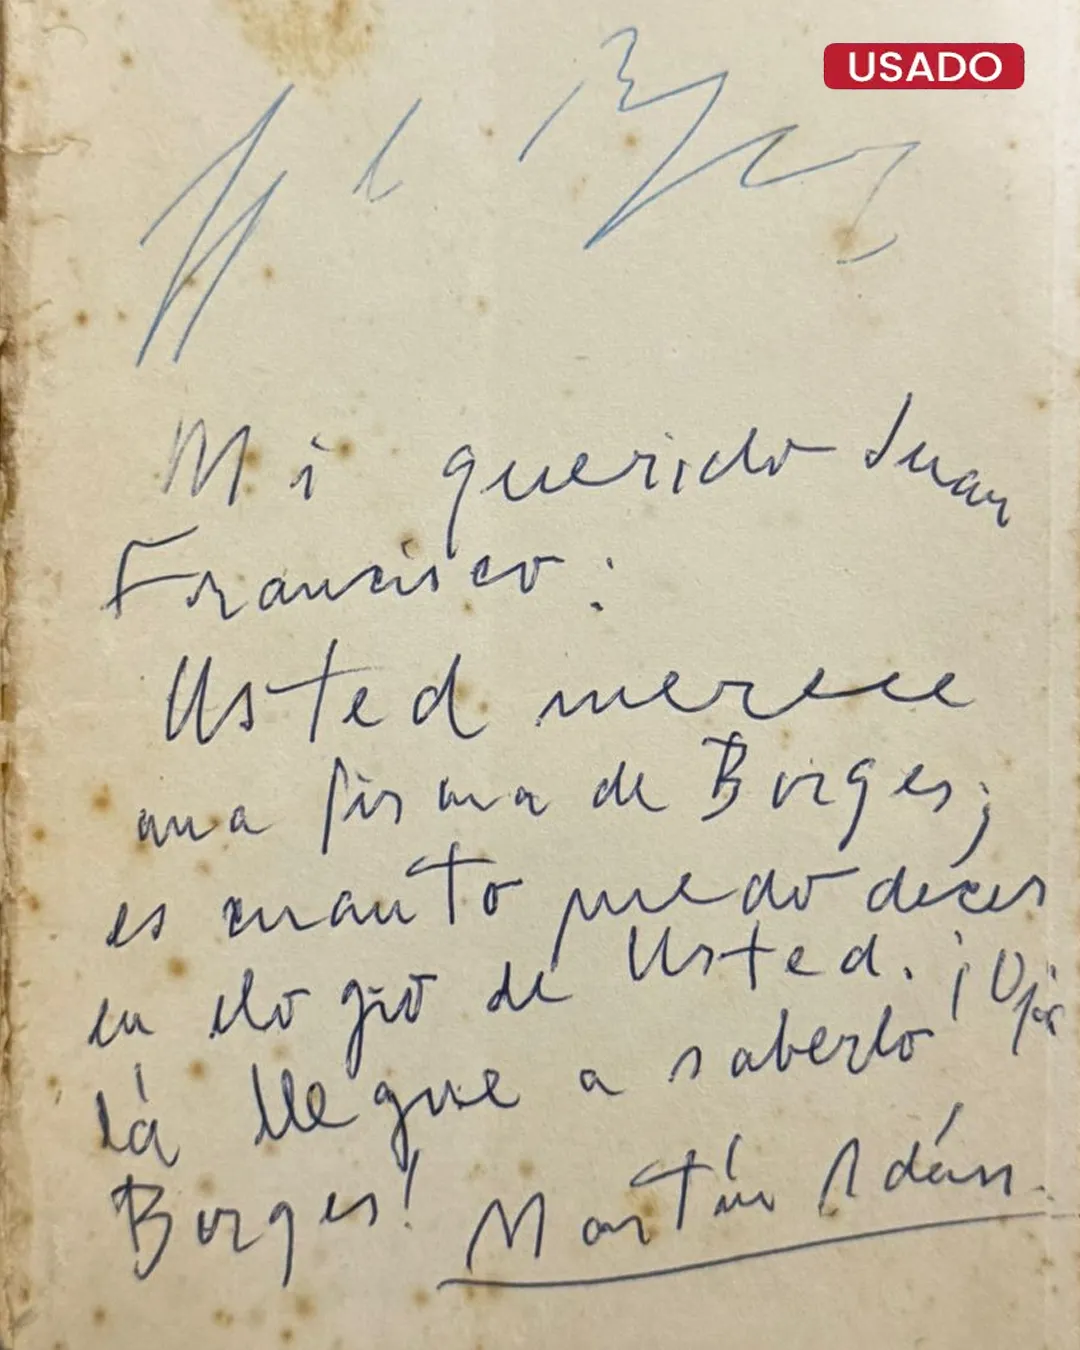 USADO
Mi querido Juan
Francisco:
Usted merece
una firma de Borges;
es cuanto puedo decir
en elogio de Usted. ¡Oja
lá llegue a saberlo
Borges!
Martín Adán.